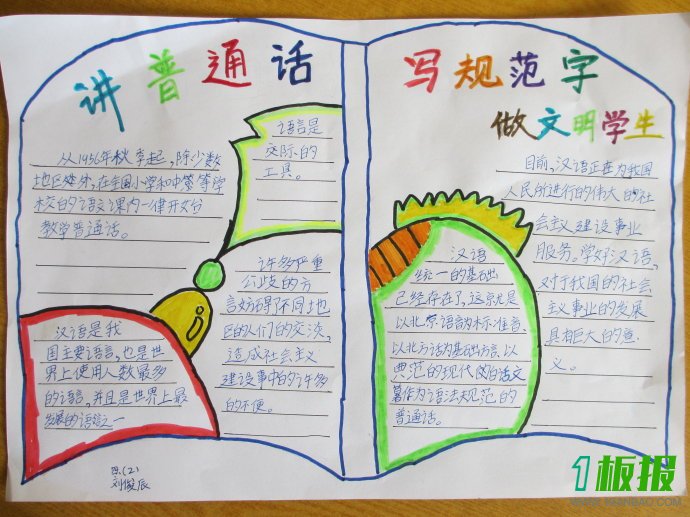 讲普通话
从1956年秋季起，除少数
地区处，在全国小学和中等等学
校的语文课内一律开始
教学普通话。
语言是
交际的
工具。
许多严重
公歧的方
言妨碍了不同地
区的人们的交淡，
造成社会主义
建设事中的许多
的不便。
汉语是我
国主要语言，也是世
界上使用人数最多
的语言，并且是世界上最
发展的语言之一
(2)
刘俊辰
写规范字
做文明学生
目前，汉语正在为我国
人民所进行的伟大的社
会主义建设事业
服务。学好汉语，
对于我国的社会
主义事业的发展
具相巨大的意
义。
汉语
统一的基础
已经存在了，这就是
以北京语音为标准音，
以北方话为基础方言，以
典范的现代白话文
著作为语法规范的
普通话。
1板报